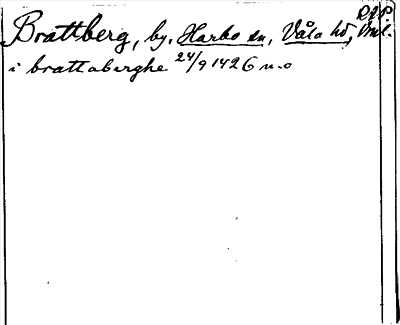 Brattberg, by, Harbo sn, Våla hd,
i brattaberghe 24/9 1426 u.o